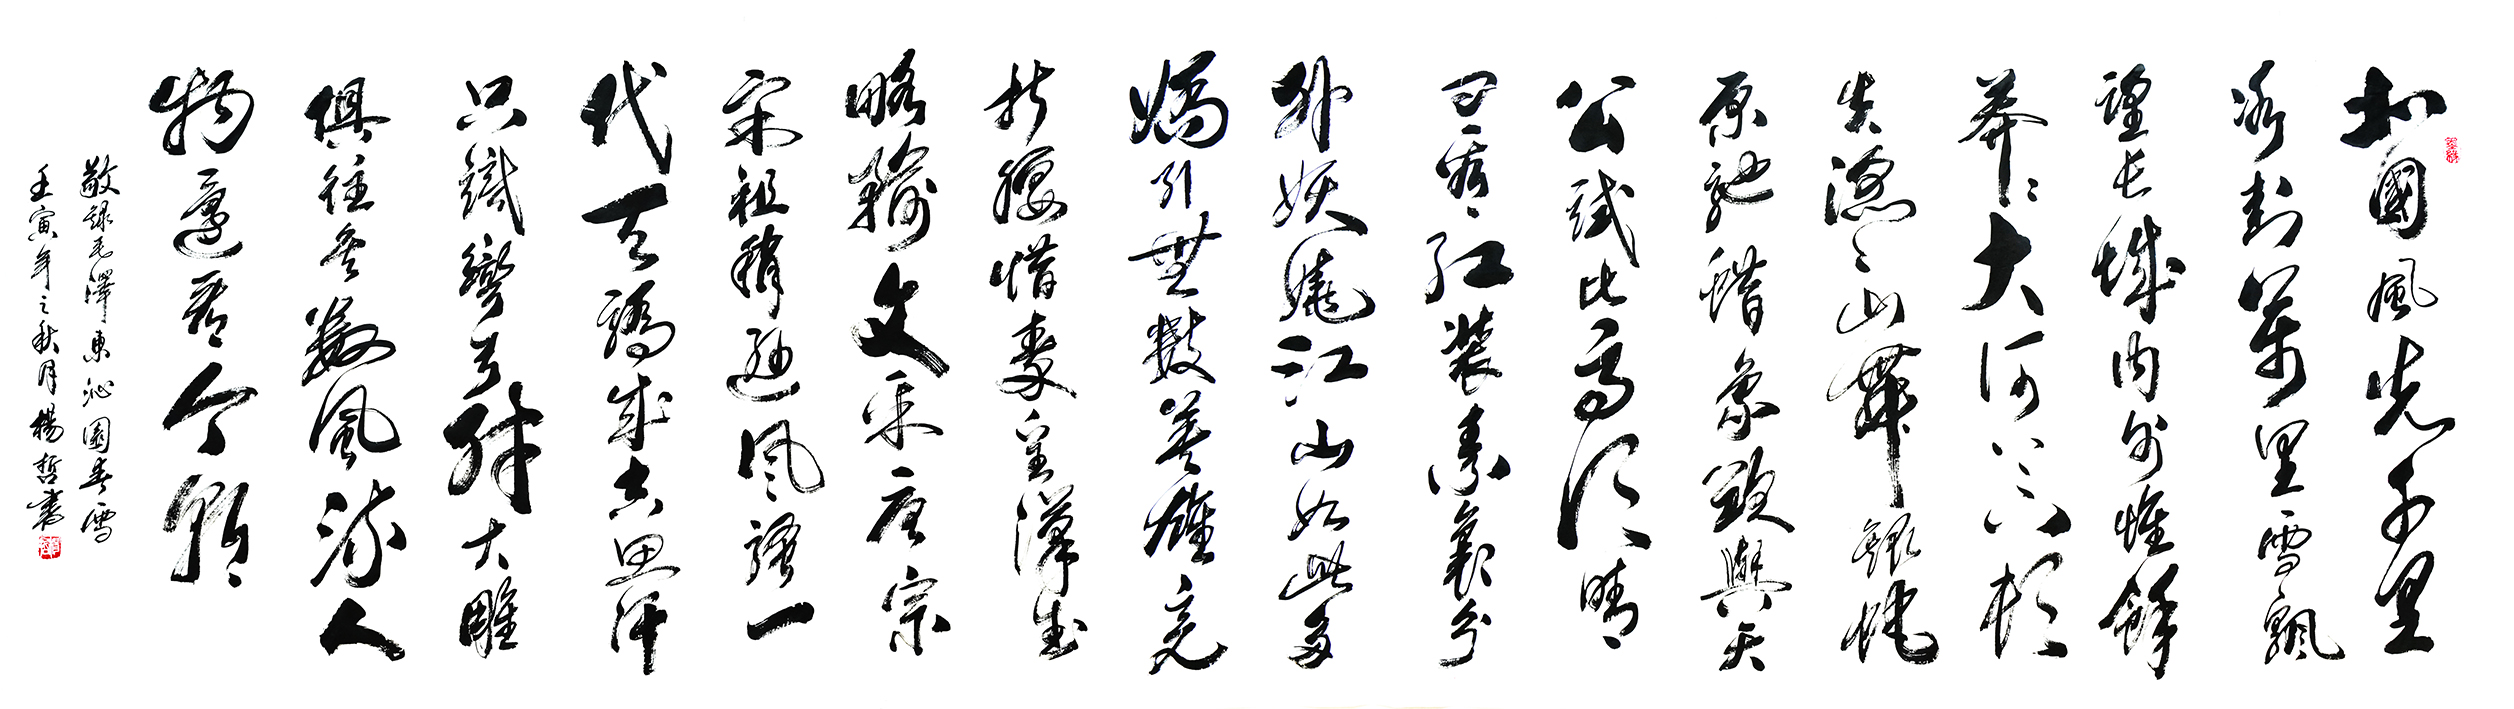 北國風光千里
冰封萬里雪飄
望長城内外惟餘
莽莽大河上下頓
失滔滔山舞銀蛇
原馳蜡象欲與天
公試比高須晴
日看紅装素裹分
外妖嬈江山如此多
嬌引無數英雄競
折腰惜秦皇漢武
略輸文采唐宗
宋祖稍遜風騷一
代天驕成吉思汗
只識彎弓射大雕
俱往矣數風流人
物還看今朝
敬録毛澤東沁園春雪
壬寅年之秋月楊哲書